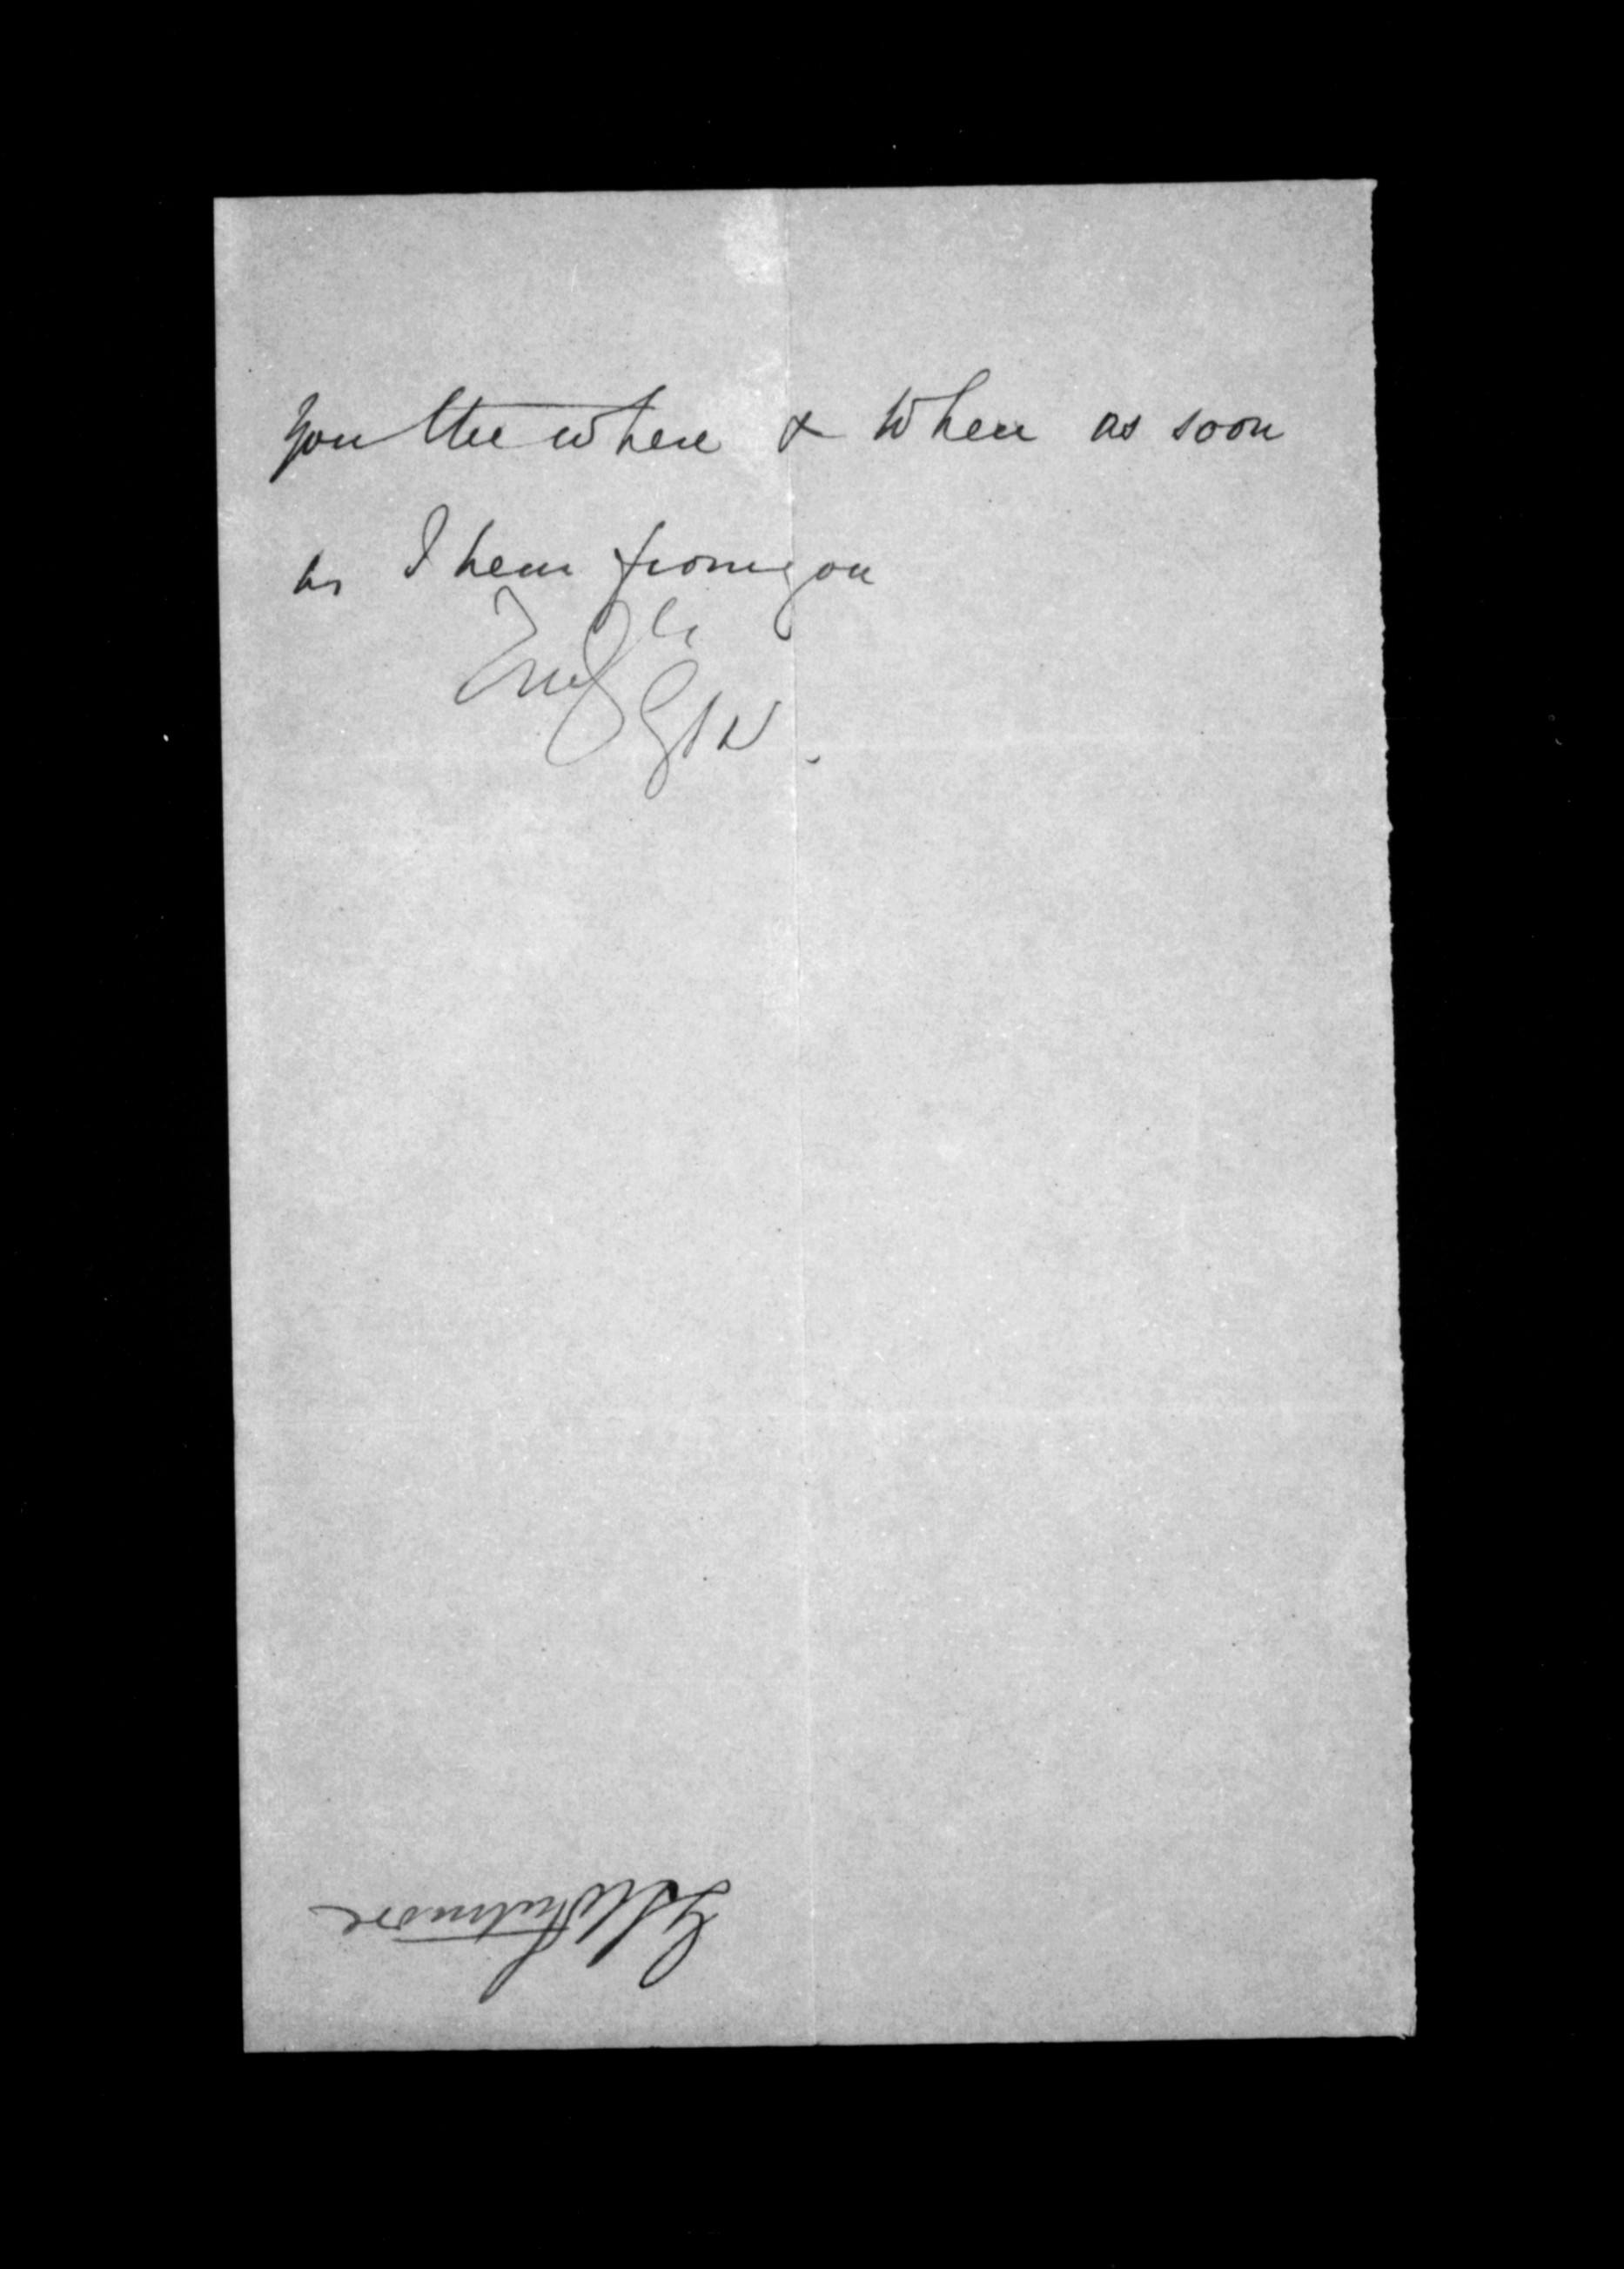 you the where & when as soon
as I hear from you
Truly
GSW.
G S Whitmore